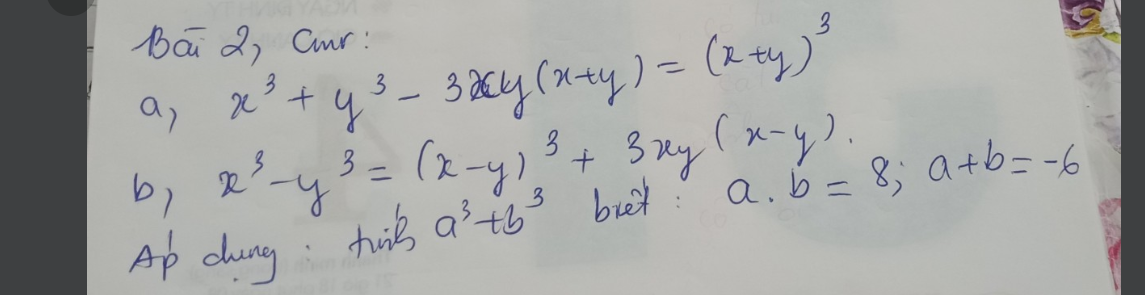 Bài 2, Cmr:
a, x³ + y³ - 3xy(x+y) = (x+y)³
b, x³-y³ = (x-y)³ + 3xy(x-y).
Áp dụng : tính a³+b³ biết : a.b = 8; a+b=-6